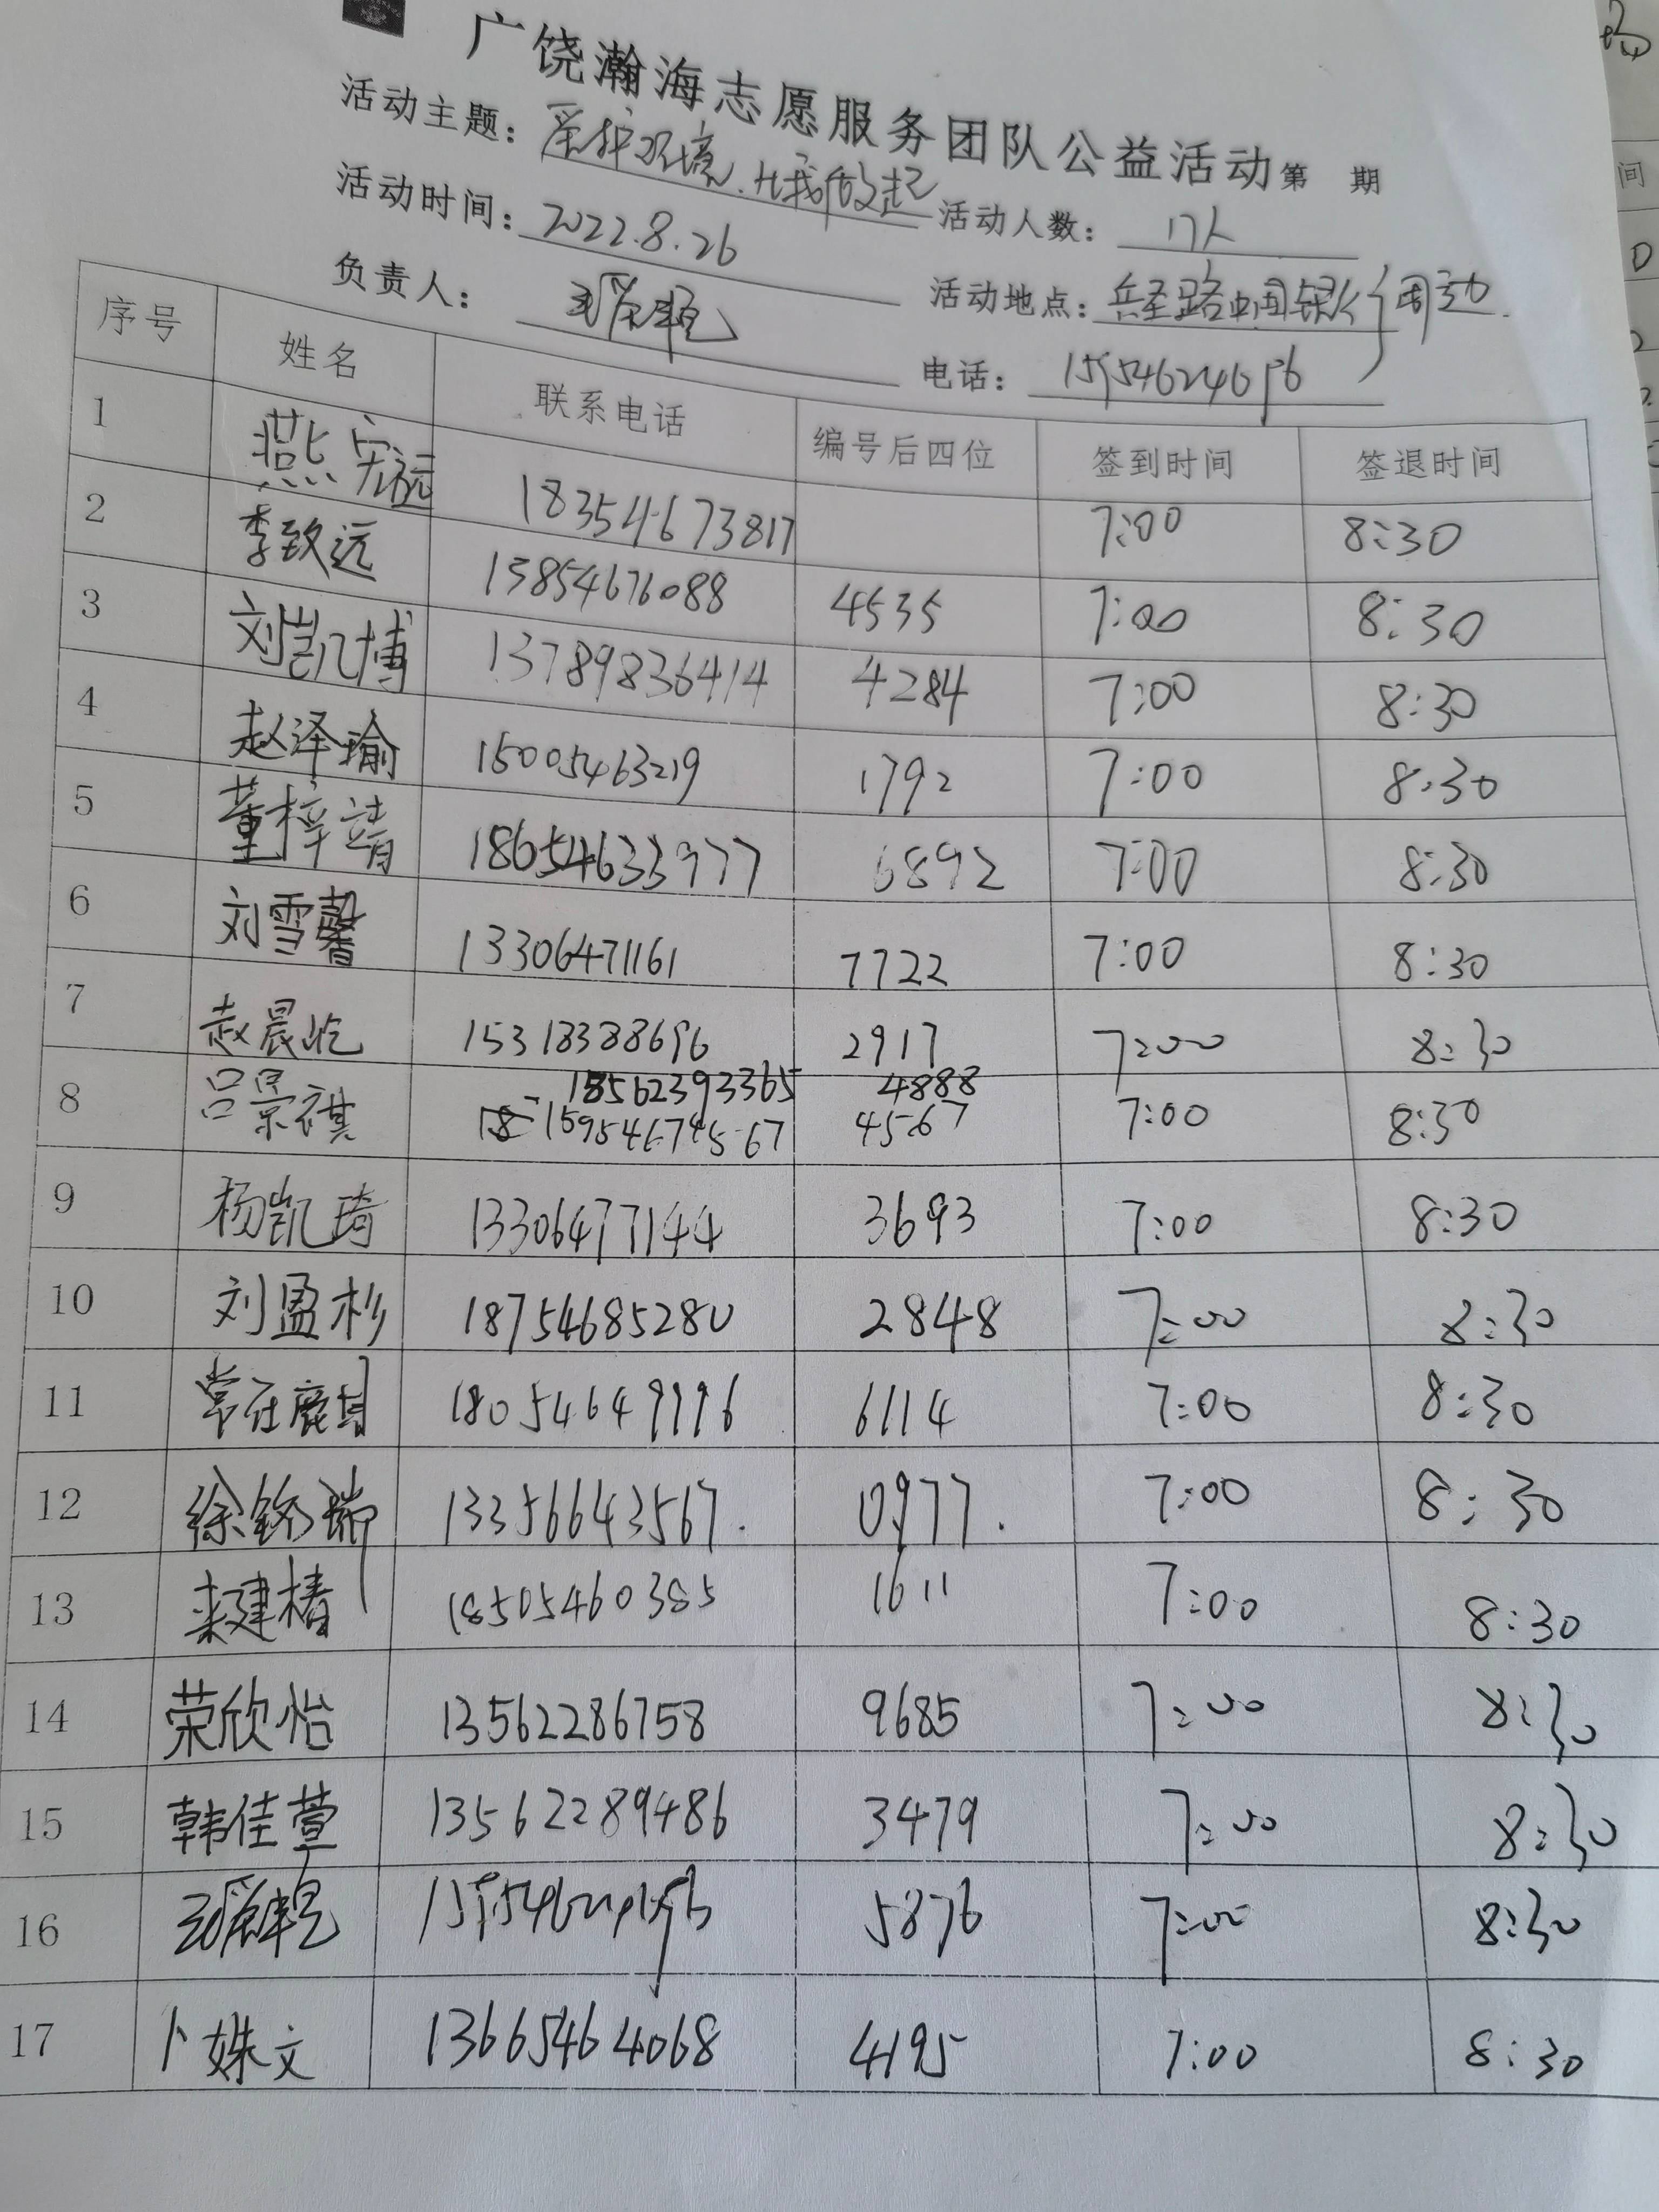 广饶瀚海志愿服务团队公益活动第 期
活动主题：爱护环境，从我做起 活动人数：17人
活动时间：2022.8.26 活动地点：兵圣路中国银行周边
负责人： 电话：
序号 姓名 联系电话 编号后四位 签到时间 签退时间
1 燕宏远 18354673817 7:00 8:30
2 李致远 13854676088 4535 7:00 8:30
3 刘凯博 13789836414 4284 7:00 8:30
4 赵泽瑜 15005463219 1792 7:00 8:30
5 董梓靖 18654633977 6892 7:00 8:30
6 刘雪馨 13306471161 7722 7:00 8:30
7 赵晨屹 15318388696 2917 7:00 8:30
18562393365 4888
8 吕景祺 15954674567 4567 7:00 8:30
9 杨凯琦 13306477144 3693 7:00 8:30
10 刘盈杉 18754685280 2848 7:00 8:30
11 18054649996 6114 7:00 8:30
12 13356643567. 0977. 7:00 8:30
13 18505460385 1611 7:00 8:30
14 荣欣怡 13562286758 9685 7:00 8:30
15 韩佳萱 13562289486 3479 7:00 8:30
16 5876 7:00 8:30
17 卜姝文 13665464068 4195 7:00 8:30
间